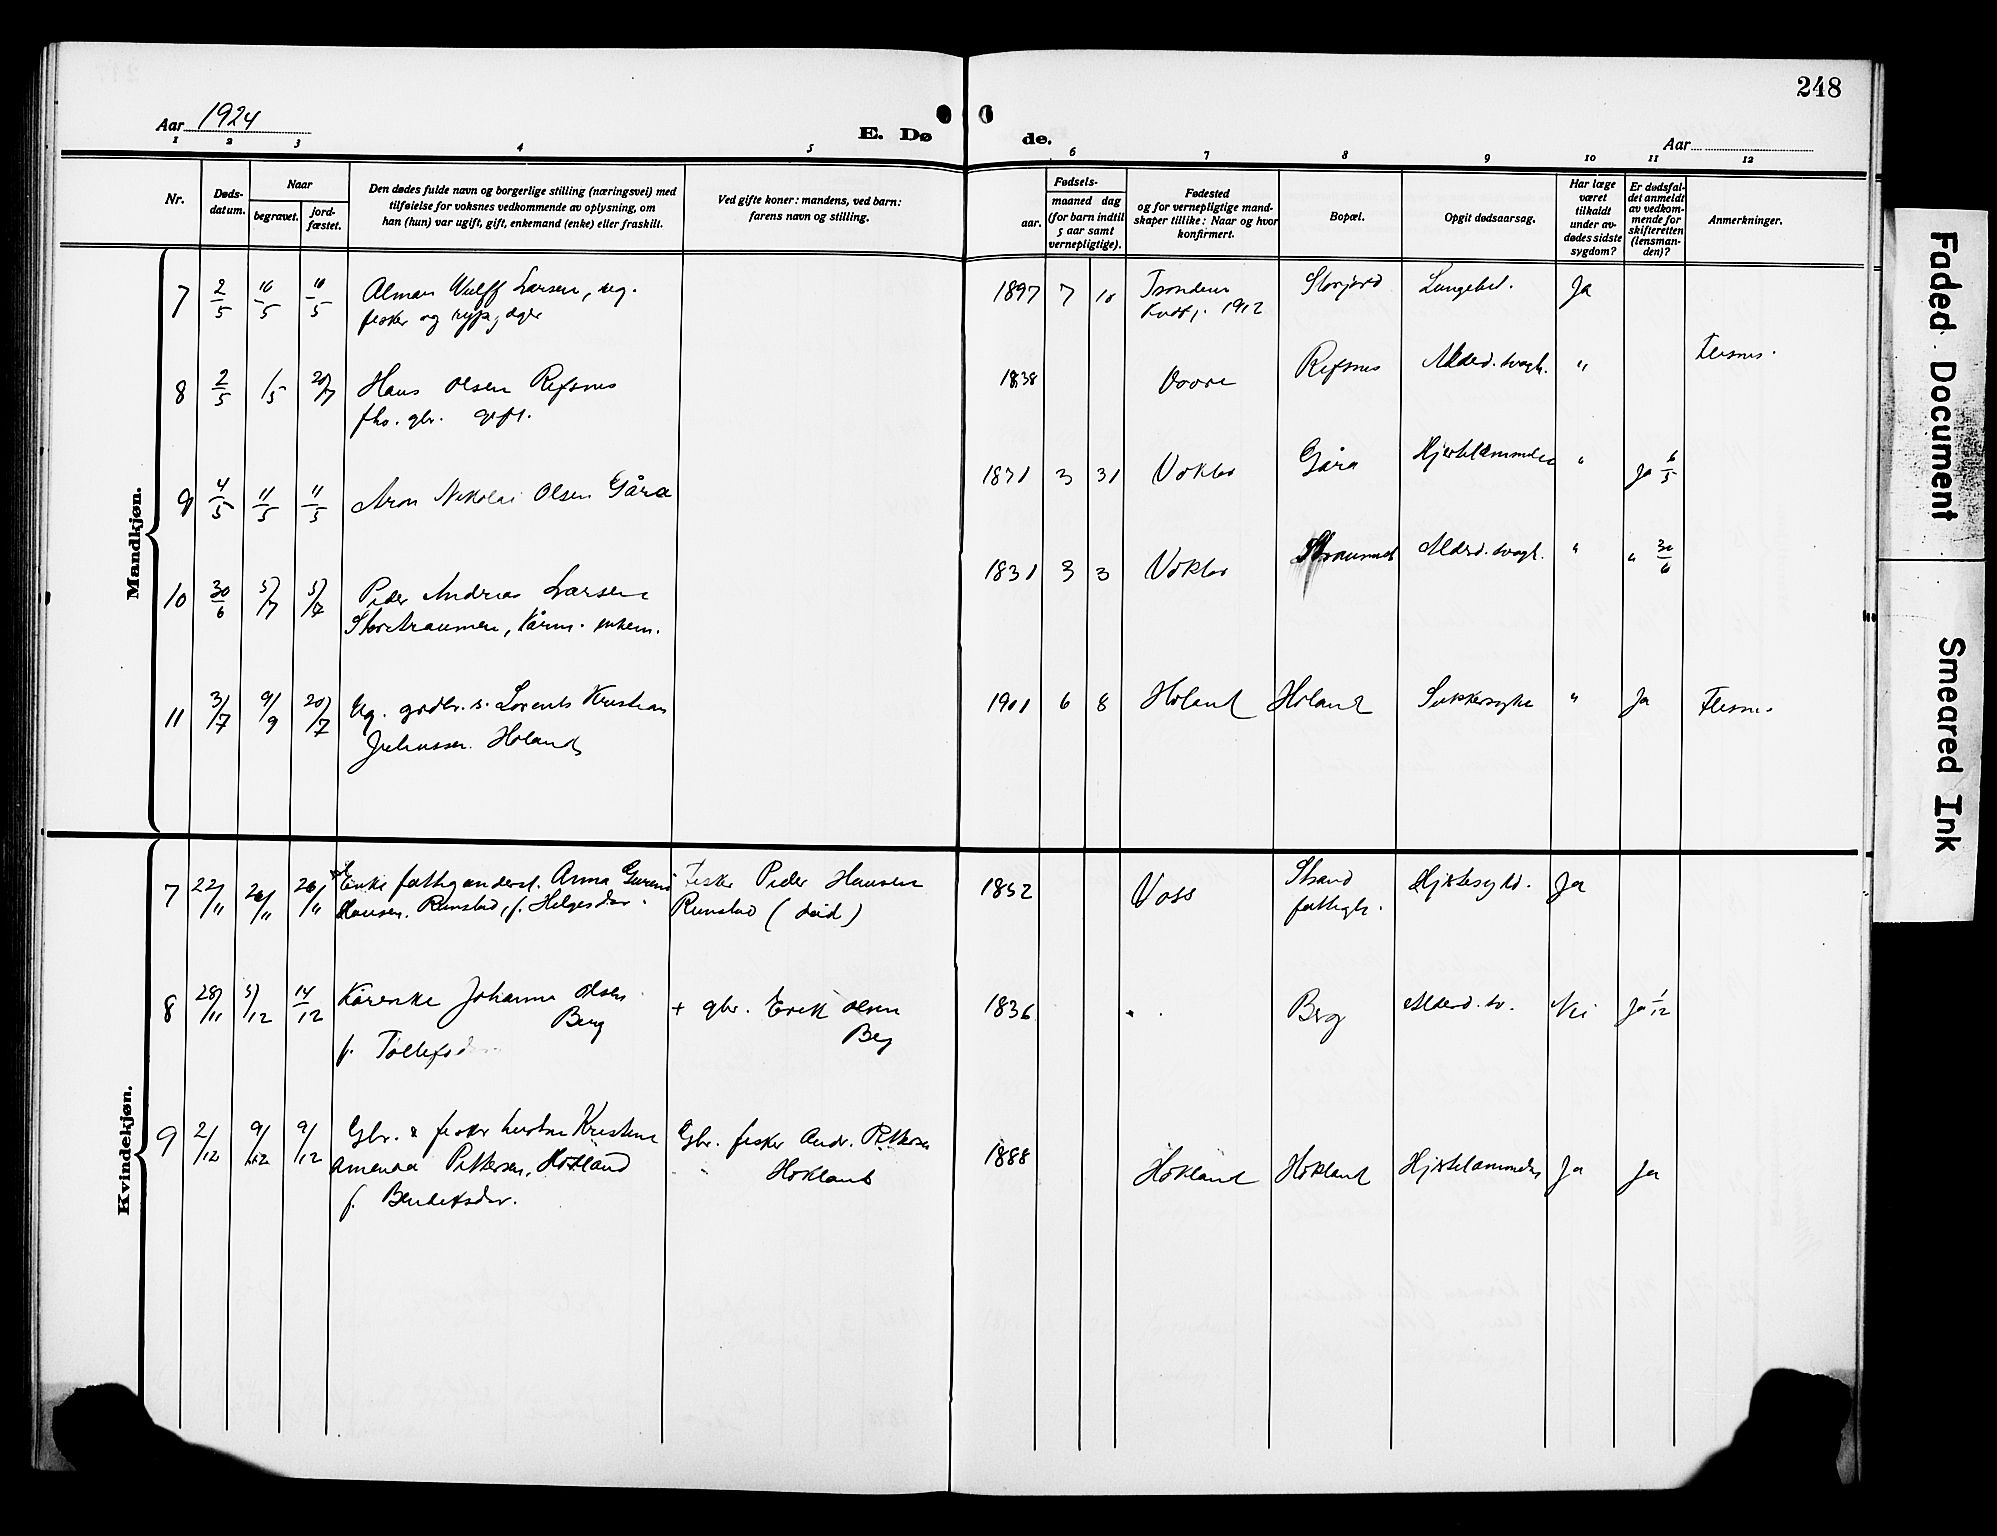 248
Aar 1924
E. Døde.
Aar
1 2 3 4 5 6 7 8 9 10 11 12
Nr.
Døds-
datum.
Naar
begravet.
jord-
fæstet.
Den dødes fulde navn og borgerlige stilling (næringsvei) med
tilføielse for voksnes vedkommende av oplysning, om
han (hun) var ugift, gift, enkemand (enke) eller fraskilt.
Ved gifte koner: mandens, ved barn:
farens navn og stilling.
Fødsels-
aar.
maaned dag
(for barn indtil
5 aar samt
vernepligtige).
Fødested
og for vernepligtige mand-
skaper tillike: Naar og hvor
konfirmert.
Bopæl.
Opgit dødsaarsag.
Har læge
været
tilkaldt
under av-
dødes sidste
sygdom?
Er dødsfal-
det anmeldt
av vedkom-
mende for
skifteretten
(lensman-
den)?
Anmerkninger.
Mandkjøn.
7 2/5 10/5 10/5 Alman Wulff Larsen, ug. 1897 7 10 Trondenes Storjord Lungebet. Ja
fisker og
1912
8 2/5 1/5 20/7 Hans Olsen Refsnes 1838 Refsnes Alderd.svagh. " Flesnes.
fho. gbr. gift.
9 4/5 11/5 11/5 Aron Nikolai Olsen Gåra 1871 3 31 Gåra Hjertelammelse " Ja 6/5
10 30/6 5/7 5/7 Peder Andreas Larsen 1831 3 3 Straumen Alderd.svagh. " " 30/6
Storstraumen, kårm. enkem.
11 3/7 9/9 20/7 Ug. grdbr. s. Lorents Kristian 1901 6 8 Høland Høland Sukkersyke " Ja Flesnes
Juliussen Høland
Kvindekjøn.
7 22/11 26/11 26/11 Enke fattigunderst. Anna Fisker Peder Hansen 1852 Voss Strand Hjertesygd. Ja
Hansen. Runstad, f. Helgesdar. Runstad (død) fattigh.
8 28/11 5/12 14/12 Kårenke Johanna Olsen + gbr. Erik Olsen 1836 " Berg Alderd. sv. Nei Ja 1/12
Berg Berg
f. Tollefsd
9 2/12 9/12 9/12 Gbr. & fisker hustru Kristine Gbr. fisker Andr. Pettersen 1888 Hokland Hokland Hjertelammelse Ja Ja
Amenda Pettersen, Hokland Hokland
f. Bendeksdar.
Faded Document
Smeared Ink